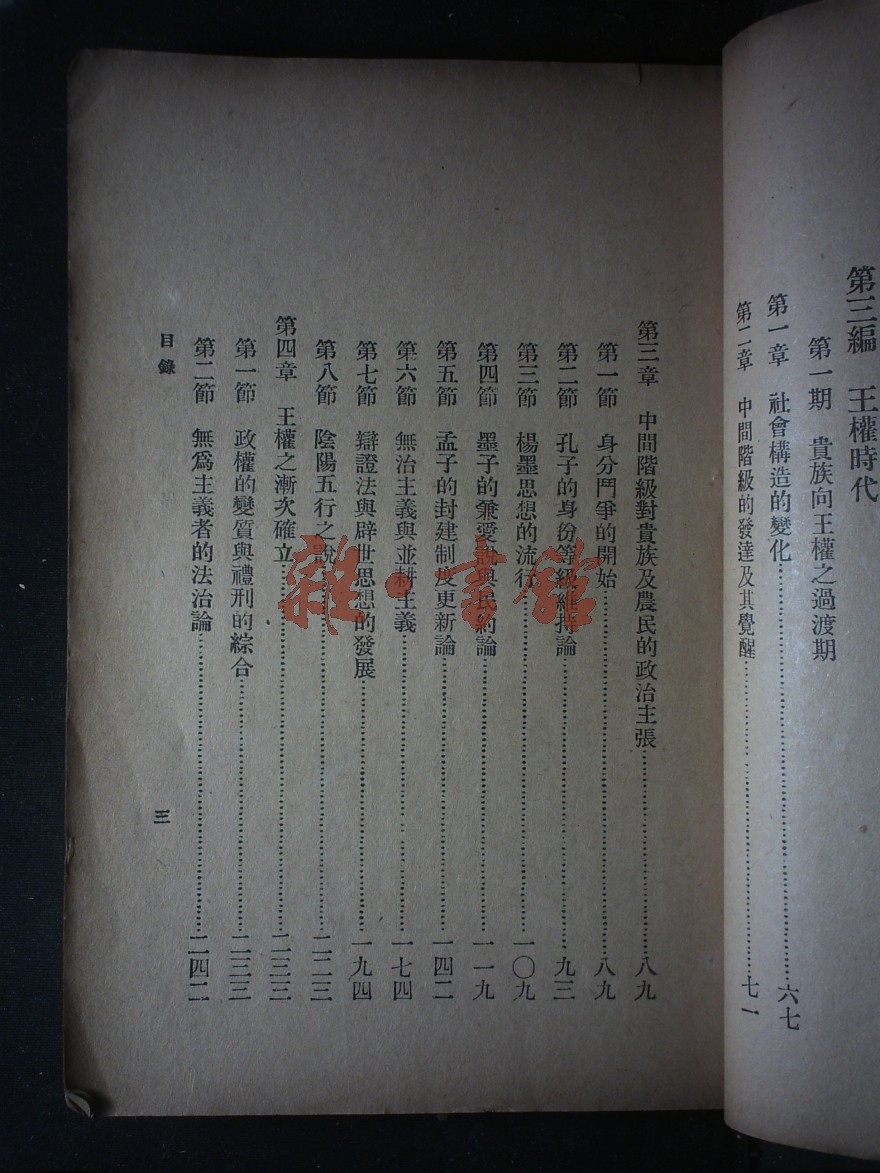 第三編　王權時代
第一期　貴族向王權之過渡期
第一章　社會構造的變化……六七
第二章　中間階級的發達及其覺醒……七一
第三章　中間階級對貴族及農民的政治主張……八九
第一節　身分鬥爭的開始……八九
第二節　孔子的身份等級維持論……九三
第三節　楊墨思想的流行……一〇九
第四節　墨子的兼愛說與民約論……一一九
第五節　孟子的封建制度更新論……一四二
第六節　無治主義與並耕主義……一七四
第七節　辯證法與辟世思想的發展……一九四
第八節　陰陽五行之說……二二三
第四章　王權之漸次確立……二三三
第一節　政權的變質與禮刑的綜合……二三三
第二節　無爲主義者的法治論……二四二
目錄
三
雜·書館